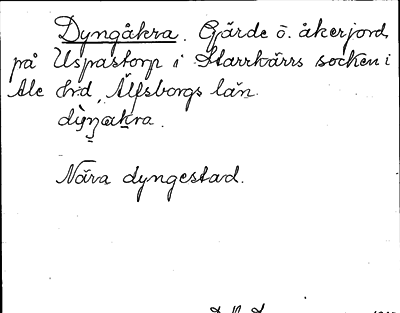 Dyngåkra. Gärde o. åkerjord
på Uspastorp i Starrkärrs socken i
Ale hrd, Älfsborgs län.
dyŋakra.
Nära dyngestad.